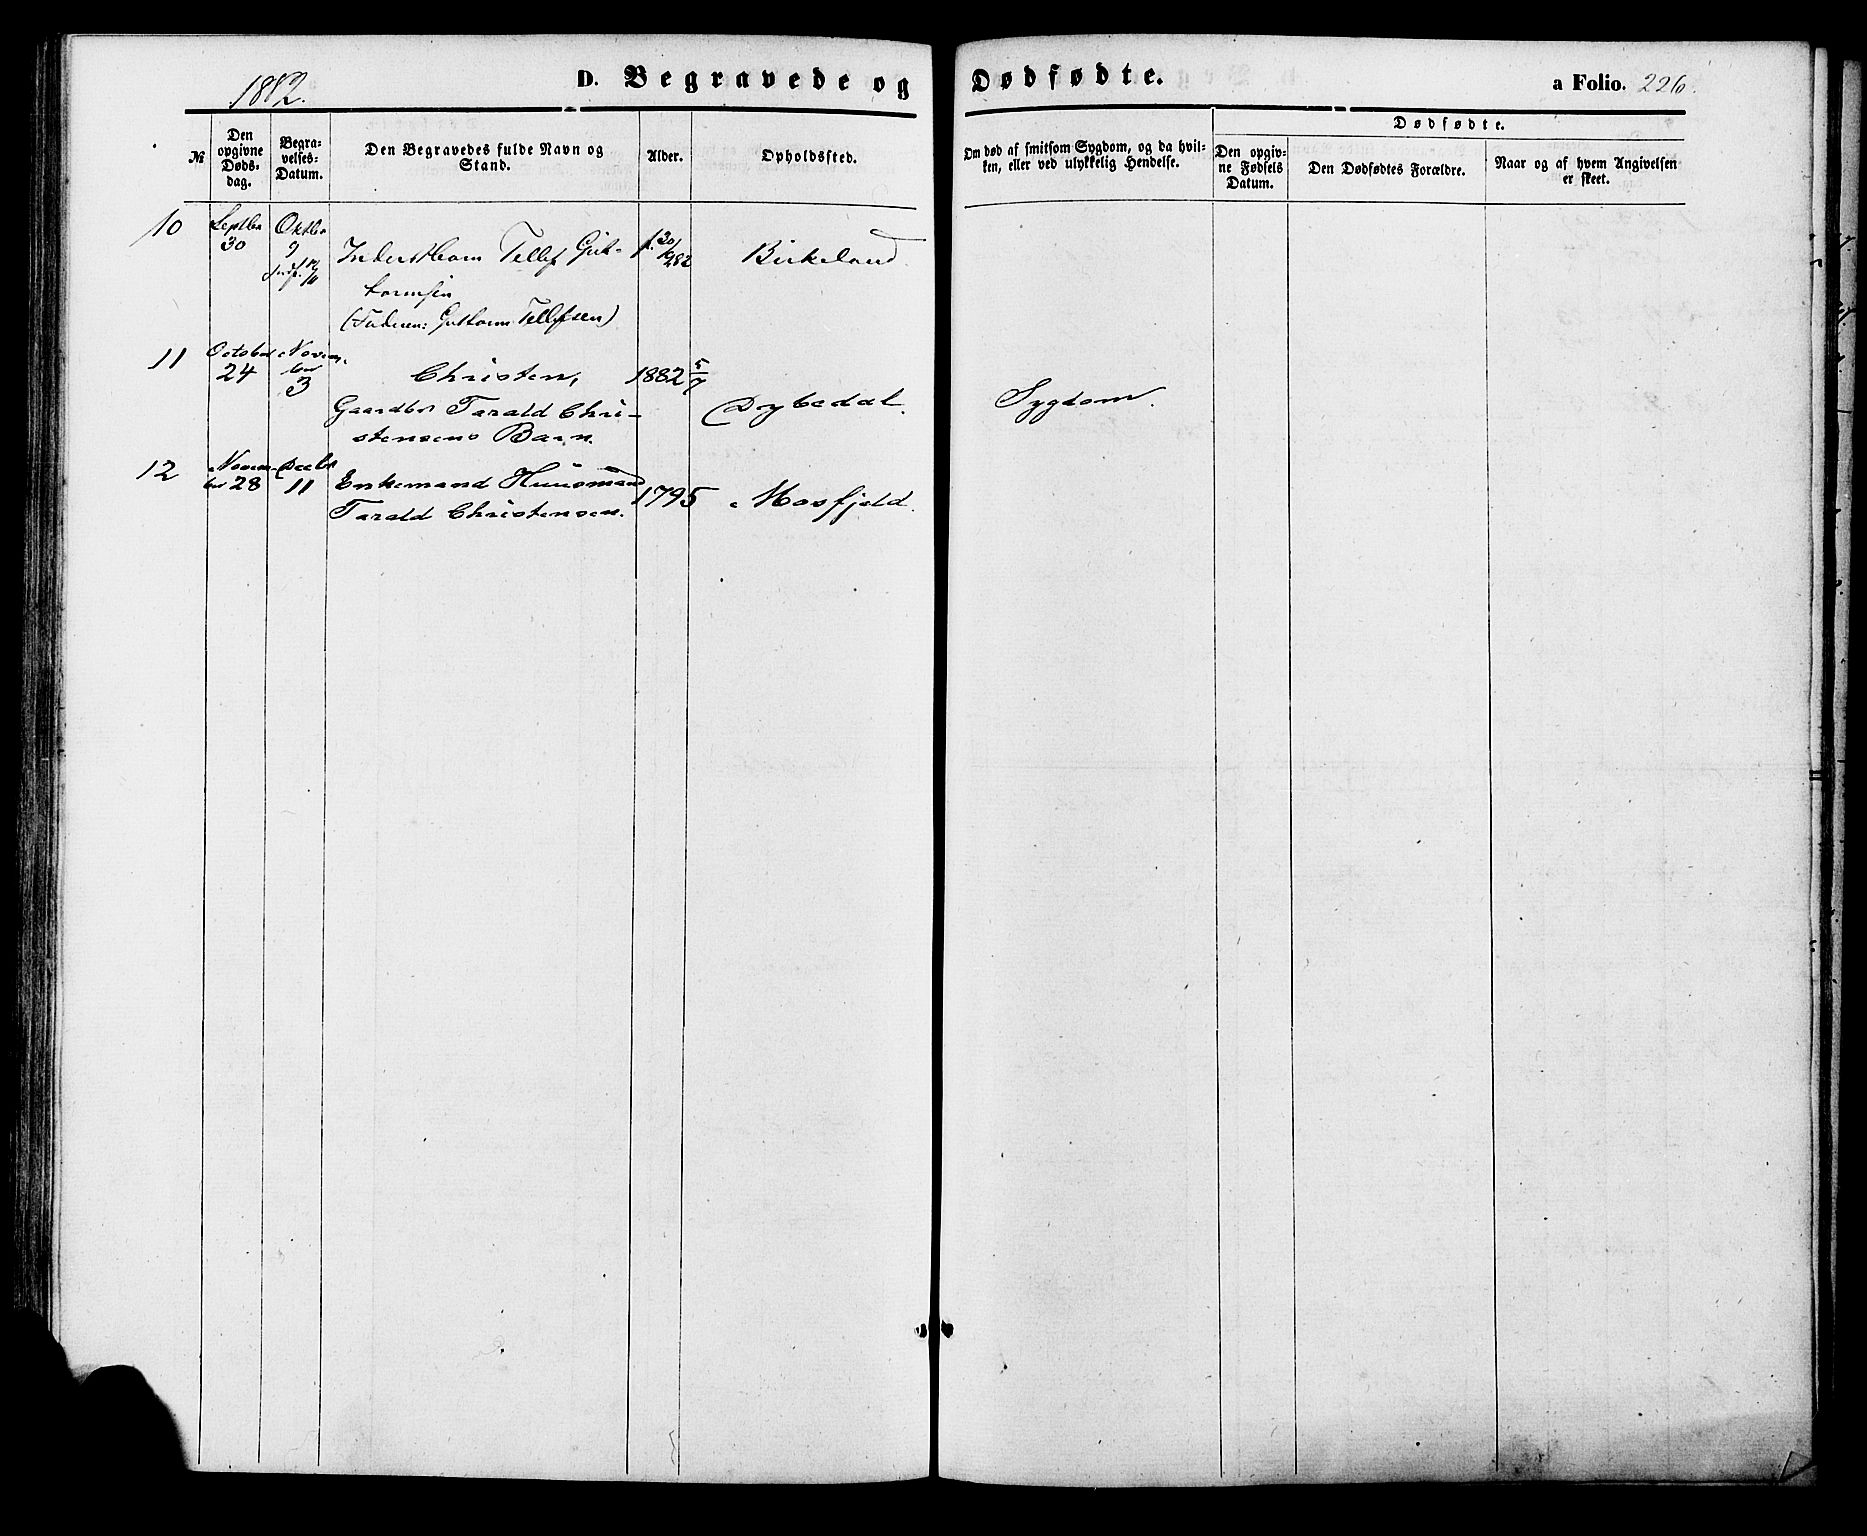 1882.
D. Begravede og Dødfødte.
a Folio. 226.
№
Den opgivne Døds-dag.
Begra-velses-Datum.
Den Begravedes fulde Navn og Stand.
Alder.
Opholdssted.
Om død af smitsom Sygdom, og da hvil-
ken, eller ved ulykkelig Hendelse.
Dødfødte.
Den opgiv-ne Fødsels Datum.
Den Dødfødtes Forældre.
Naar og af hvem Angivelsen
er skeet.
10 Septbr 30 Oktbr 9
Tellef Gut-
tormsen
(Faderen: Guttorm Tellefsen)
f. 30/9 82
Birkeland.
11 October 24 Novem-ber 3
Christen,
Gaardbr Tarald Chri-
stensens Barn.
1882 5/7
Dybedal.
Sygdom.
12 Novem-ber 28 Decbr 11
Enkemand Huusmand
Tarald Christensen.
1795
Mosfjeld.